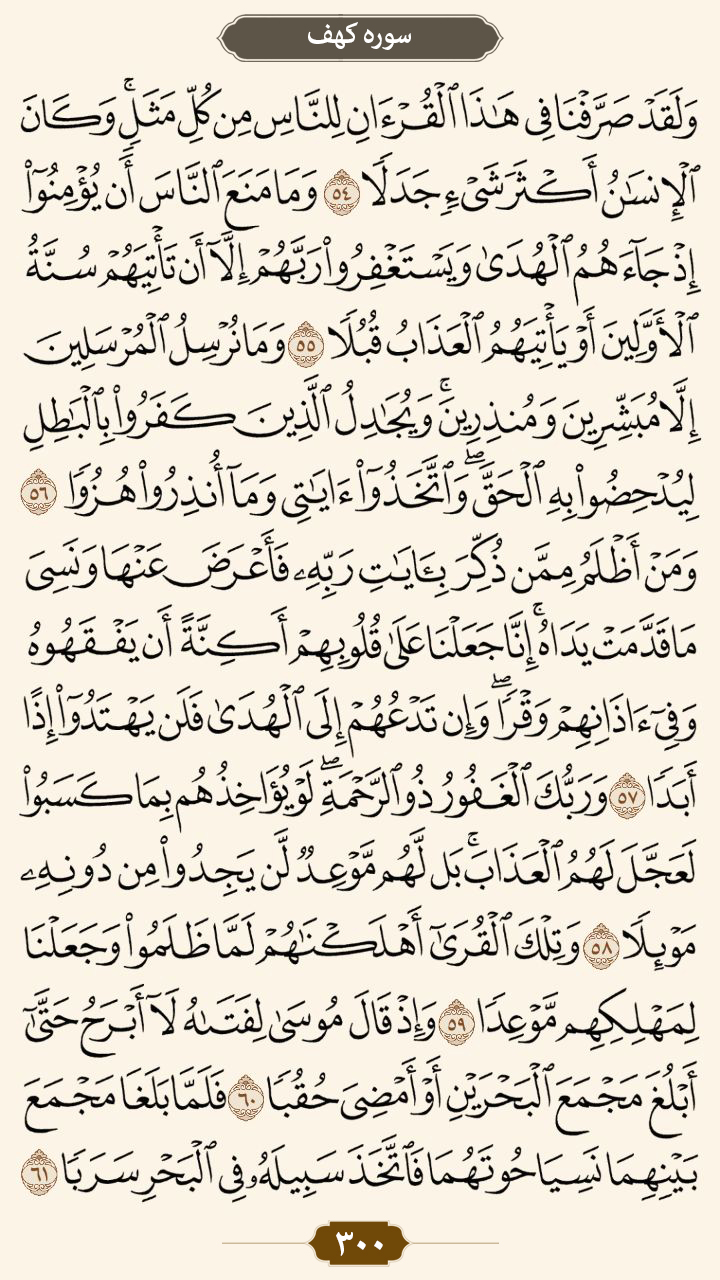 سوره کهف
وَلَقَدْ صَرَّفْنَا فِي هَٰذَا ٱلْقُرْءَانِ لِلنَّاسِ مِن كُلِّ مَثَلٍۚ وَكَانَ
ٱلْإِنسَٰنُ أَكْثَرَ شَىْءٍ جَدَلًا ٥٤ وَمَا مَنَعَ ٱلنَّاسَ أَن يُؤْمِنُوٓا۟
إِذْ جَآءَهُمُ ٱلْهُدَىٰ وَيَسْتَغْفِرُوا۟ رَبَّهُمْ إِلَّآ أَن تَأْتِيَهُمْ سُنَّةُ
ٱلْأَوَّلِينَ أَوْ يَأْتِيَهُمُ ٱلْعَذَابُ قُبُلًا ٥٥ وَمَا نُرْسِلُ ٱلْمُرْسَلِينَ
إِلَّا مُبَشِّرِينَ وَمُنذِرِينَۚ وَيُجَٰدِلُ ٱلَّذِينَ كَفَرُوا۟ بِٱلْبَٰطِلِ
لِيُدْحِضُوا۟ بِهِ ٱلْحَقَّۖ وَٱتَّخَذُوٓا۟ ءَايَٰتِى وَمَآ أُنذِرُوا۟ هُزُوًا ٥٦
وَمَنْ أَظْلَمُ مِمَّن ذُكِّرَ بِـَٔايَٰتِ رَبِّهِۦ فَأَعْرَضَ عَنْهَا وَنَسِىَ
مَا قَدَّمَتْ يَدَاهُۚ إِنَّا جَعَلْنَا عَلَىٰ قُلُوبِهِمْ أَكِنَّةً أَن يَفْقَهُوهُ
وَفِىٓ ءَاذَانِهِمْ وَقْرًاۖ وَإِن تَدْعُهُمْ إِلَى ٱلْهُدَىٰ فَلَن يَهْتَدُوٓا۟ إِذًا
أَبَدًا ٥٧ وَرَبُّكَ ٱلْغَفُورُ ذُو ٱلرَّحْمَةِۖ لَوْ يُؤَاخِذُهُم بِمَا كَسَبُوا۟
لَعَجَّلَ لَهُمُ ٱلْعَذَابَۚ بَل لَّهُم مَّوْعِدٌ لَّن يَجِدُوا۟ مِن دُونِهِۦ
مَوْئِلًا ٥٨ وَتِلْكَ ٱلْقُرَىٰٓ أَهْلَكْنَٰهُمْ لَمَّا ظَلَمُوا۟ وَجَعَلْنَا
لِمَهْلِكِهِم مَّوْعِدًا ٥٩ وَإِذْ قَالَ مُوسَىٰ لِفَتَىٰهُ لَآ أَبْرَحُ حَتَّىٰٓ
أَبْلُغَ مَجْمَعَ ٱلْبَحْرَيْنِ أَوْ أَمْضِىَ حُقُبًا ٦٠ فَلَمَّا بَلَغَا مَجْمَعَ
بَيْنِهِمَا نَسِيَا حُوتَهُمَا فَٱتَّخَذَ سَبِيلَهُۥ فِى ٱلْبَحْرِ سَرَبًا ٦١
٣٠٠